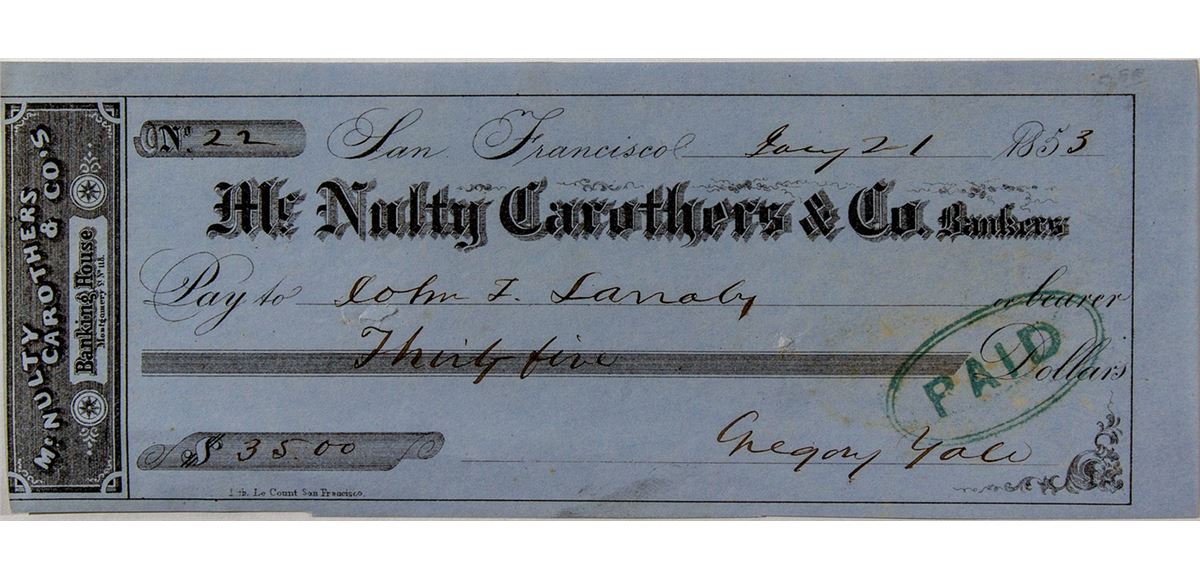 McNULTY CAROTHERS & CO'S
Banking House
Montgomery St. No 118.
No. 22 San Francisco Jany 21 1853
Mc Nulty Carothers & Co. Bankers
Pay to John F. or bearer
Thirty five Dollars
PAID
$ 35.00 Gregory Yale
Lith. Le Count San Francisco.